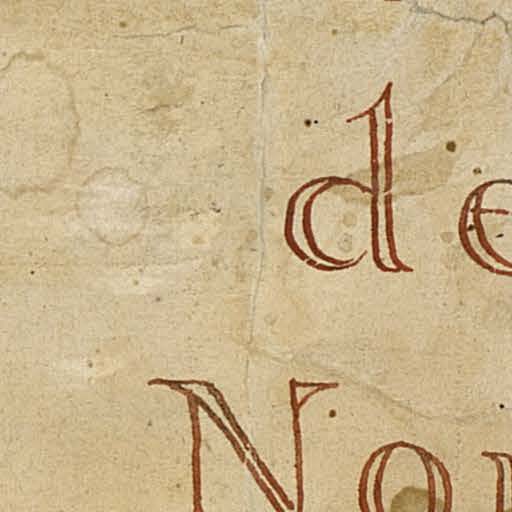 de
No